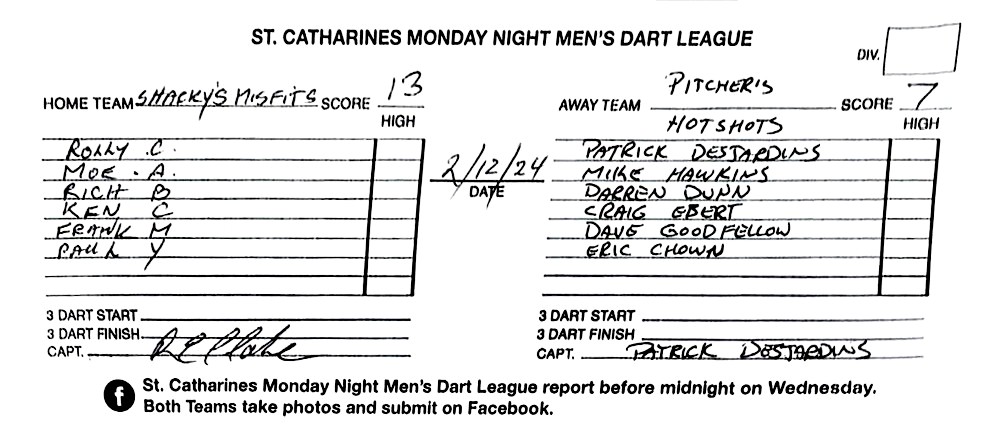 ST. CATHARINES MONDAY NIGHT MEN'S DART LEAGUE
DIV.
HOME TEAM SHACKY'S MISFITS SCORE 13
HIGH
AWAY TEAM PITCHER'S HOTSHOTS SCORE 7
HIGH
ROLLY C.
MOE . A.
RICH B
KEN C
FRANK M
PAUL Y
2/12/24
DATE
PATRICK DESJARDINS
MIKE HAWKINS
DARREN DUNN
CRAIG EBERT
DAVE GOODFELLOW
ERIC CHOWN
3 DART START
3 DART FINISH
CAPT.
3 DART START
3 DART FINISH
CAPT. PATRICK DESJARDINS
St. Catharines Monday Night Men's Dart League report before midnight on Wednesday.
Both Teams take photos and submit on Facebook.